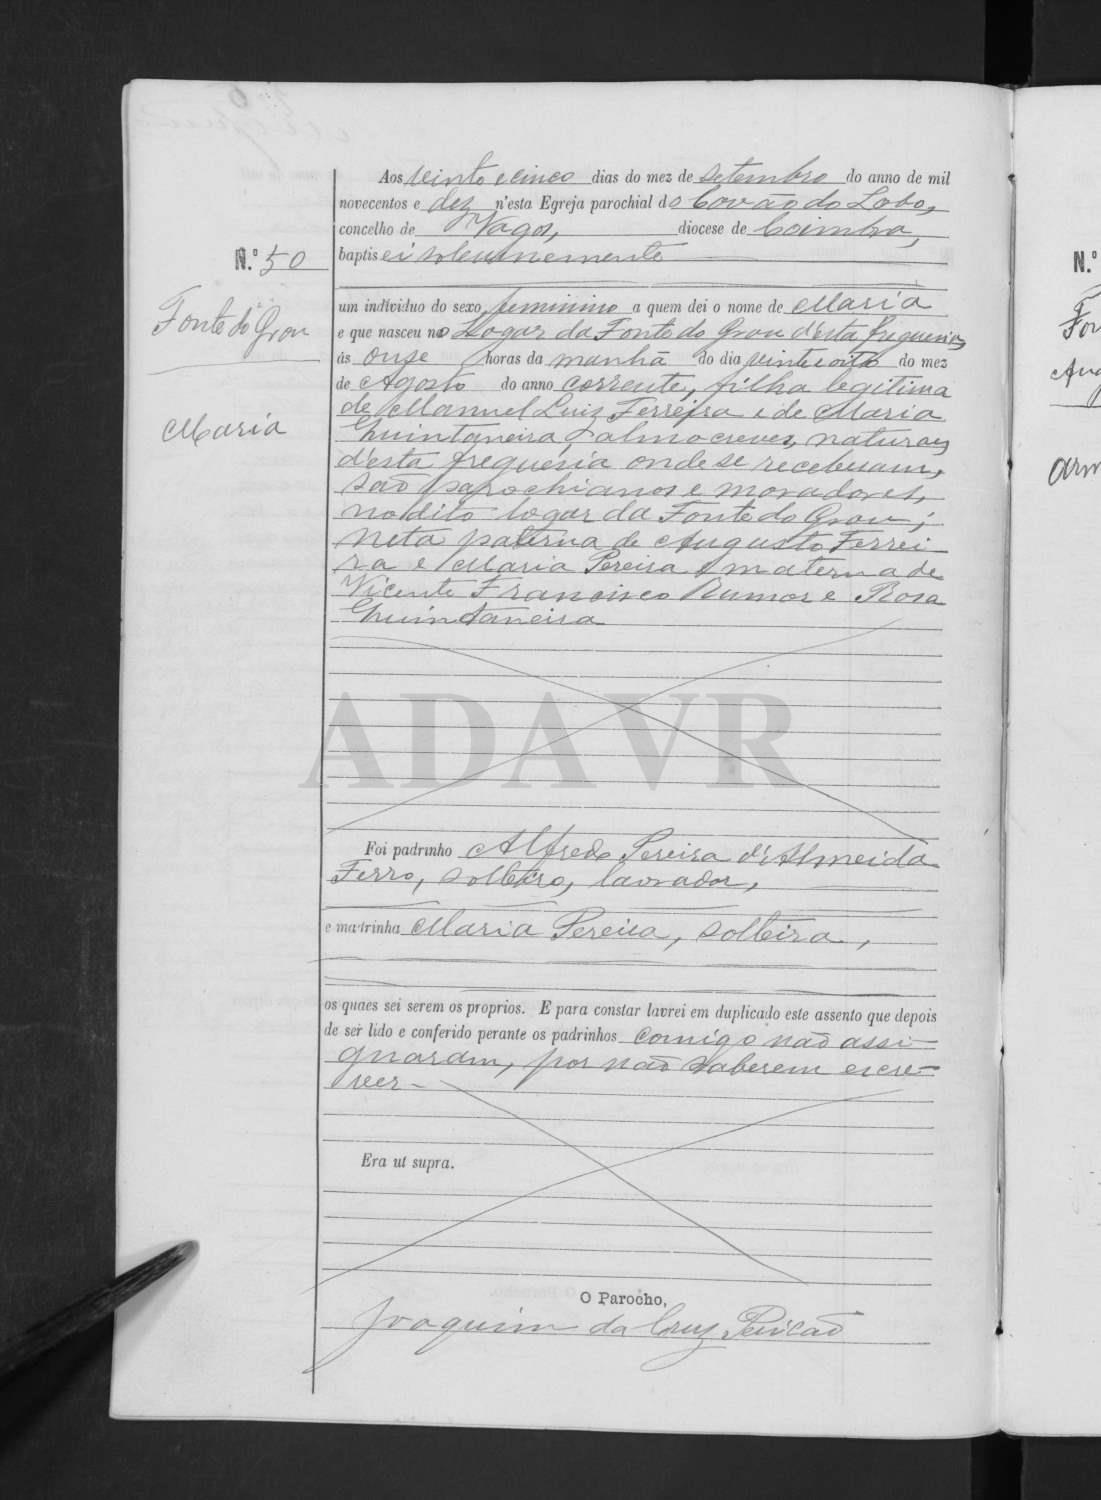 Aos vinte e cinco dias do mez de setembro do anno de mil
novecentos e dez n'esta Egreja parochial do Covão do Lobo,
concelho de Vagos, diocese de Coimbra,
N.º 50
baptisei solemnemente
um individuo do sexo feminino a quem dei o nome de Maria
Fonte do Grou
e que nasceu no Logar da Fonte do Grou d'esta freguesia,
ás onze horas da manhã do dia vinte oito do mez
de Agosto do anno corrente, filha legitima
Maria
de Manuel Luiz Ferreira e de Maria
Quintaneira, almocreves, naturaes
d'esta freguesia onde se receberam,
são parochianos e moradores,
no dito logar da Fonte do Grou;
neta paterna de Augusto Ferrei
ra e Maria Pereira e materna de
Vicente Francisco Rumor e Rosa
Quintaneira
ADAVR
Foi padrinho Alfredo Pereira d'Almeida
Ferro, solteiro, lavrador,
e madrinha Maria Pereira, solteira,
os quaes sei serem os proprios. E para constar lavrei em duplicado este assento que depois
de ser lido e conferido perante os padrinhos comigo não assi-
gnaram, por não saberem escre-
ver-
Era ut supra.
O Parocho,
Joaquim da Cruz
N.º